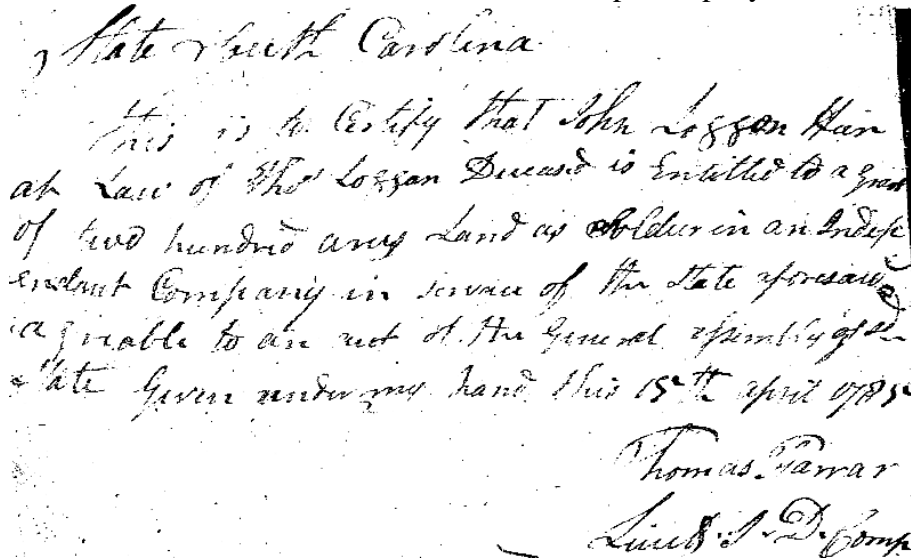 State South Carolina
This is to Certify that John Loggan Heir
at Law of Thos Loggan Deceasd is Entitled to a grant
of two hundred acres Land as Soldier in an Indep
endant Company in service of the State aforesaid
agreable to an act of the General assembly of sd
State Given under my hand this 15th april 1785
Thomas Farrar
Lieut. I. D. Comp